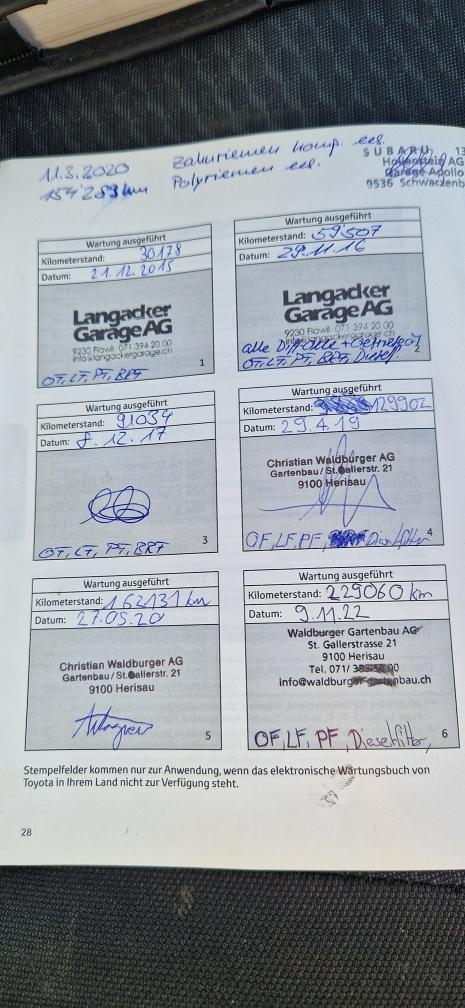 11.3.2020 Zahnriemen komp. ers.
154'283km Polyriemen ers.
SUBARU 13
Hollenstein AG
Garage Apollo
9536 Schwarzenb
Wartung ausgeführt
Kilometerstand: 30178
Datum: 21.12.2015
Langacker
Garage AG
9230 Flawil 071 394 20 00
info@langackergarage.ch
1
OT, LT, PT, BRT
Wartung ausgeführt
Kilometerstand: 59507
Datum: 29.11.16
Langacker
Garage AG
9230 Flawil 071 394 20 00
alle Diff.öle + Getriebeöl
OT, LT, PT, BRT, Diesel
2
Wartung ausgeführt
Kilometerstand: 91034
Datum: 8.12.17
3
OT, LT, PT, BRT
Wartung ausgeführt
Kilometerstand: 129902
Datum: 29.4.19
Christian Waldburger AG
Gartenbau / St.Gallerstr. 21
9100 Herisau
4
OF, LF, PF, Dieselfilter
Wartung ausgeführt
Kilometerstand: 162131 km
Datum: 27.05.20
Christian Waldburger AG
Gartenbau / St.Gallerstr. 21
9100 Herisau
5
Wartung ausgeführt
Kilometerstand: 229060 km
Datum: 9.11.22
Waldburger Gartenbau AG
St. Gallerstrasse 21
9100 Herisau
Tel. 071/
info@waldburger-gartenbau.ch
6
OF, LF, PF, Dieselfilter,
Stempelfelder kommen nur zur Anwendung, wenn das elektronische Wartungsbuch von
Toyota in Ihrem Land nicht zur Verfügung steht.
28